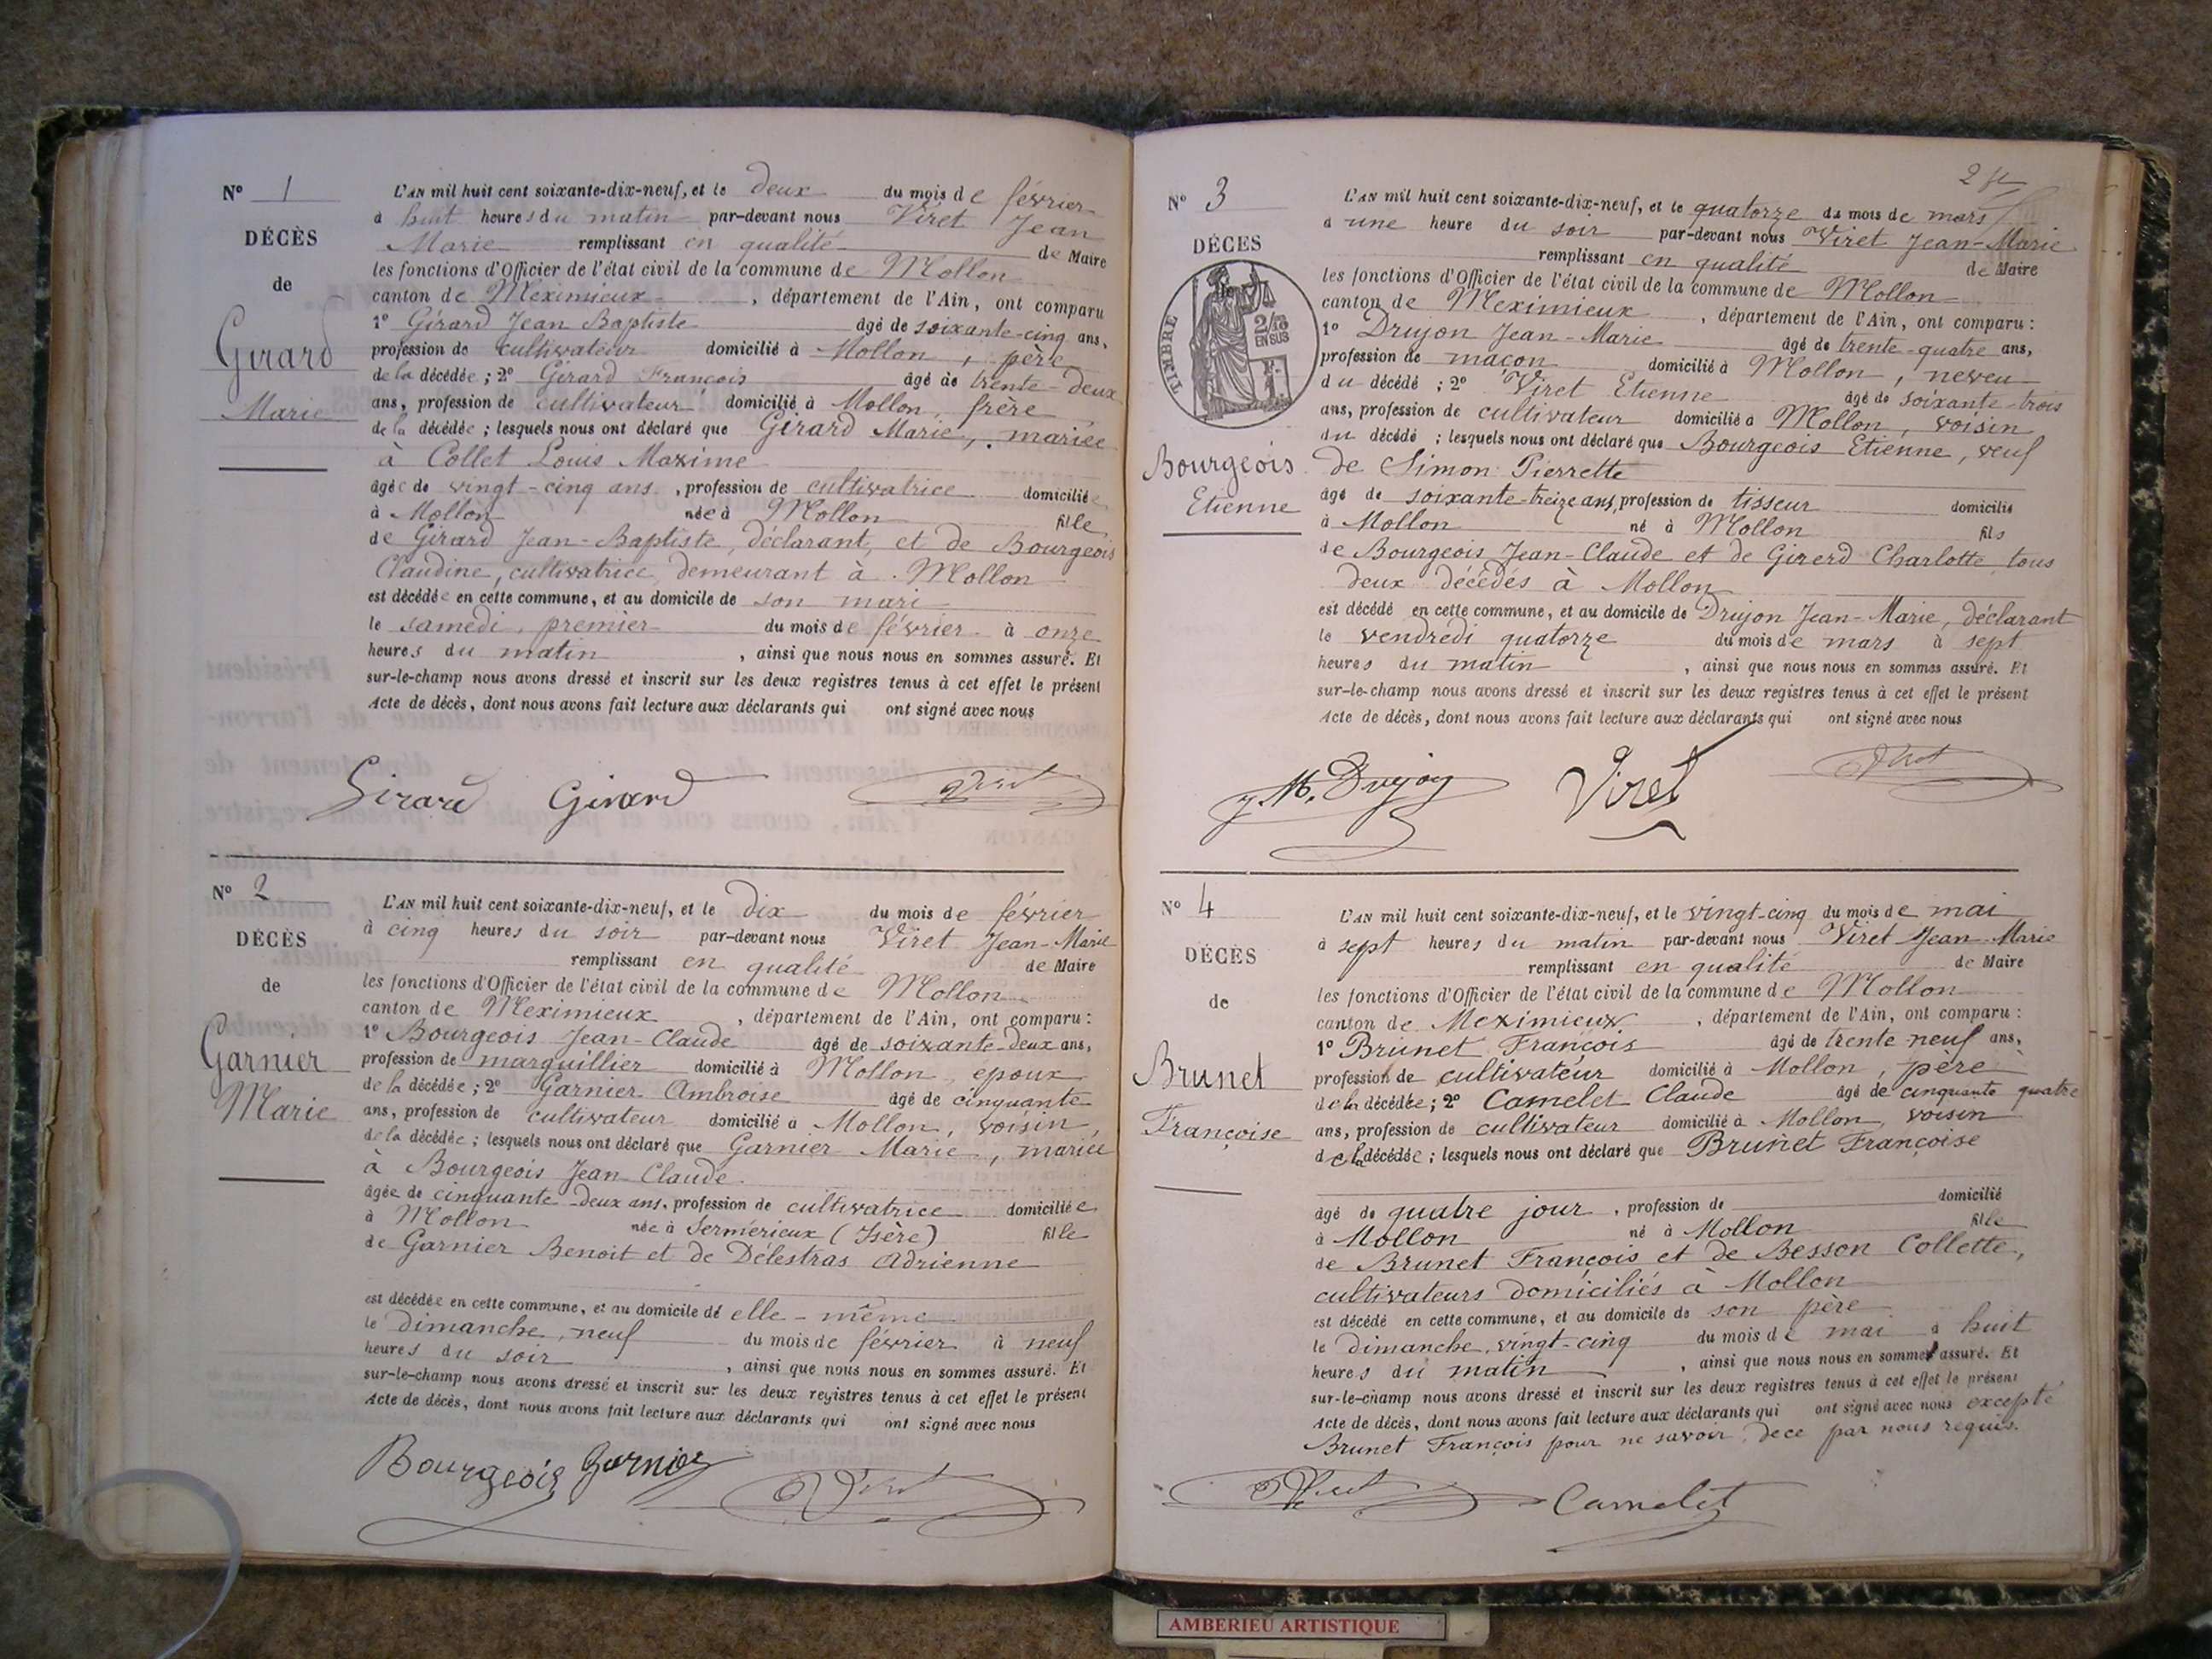 N° 1
DÉCÈS
de
Girard
Marie
L'AN mil huit cent soixante-dix-neuf, et le deux du mois de février
à huit heures du matin par-devant nous Viret Jean
Marie remplissant en qualité de Maire
les fonctions d'Officier de l'état civil de la commune de Mollon
canton de Meximieux, département de l'Ain, ont comparu
1° Girard Jean Baptiste âgé de soixante-cinq ans,
profession de cultivateur domicilié à Mollon, père
de la décédée; 2° Girard François âgé de trente-deux
ans, profession de cultivateur domicilié à Mollon, frère
de la décédée; lesquels nous ont déclaré que Girard Marie, mariée
à Collet Louis Maxime
âgée de vingt-cinq ans, profession de cultivatrice domiciliée
à Mollon née à Mollon fille
de Girard Jean-Baptiste, déclarant, et de Bourgeois
Claudine, cultivatrice, demeurant à Mollon
est décédée en cette commune, et au domicile de son mari
le samedi, premier du mois de février à onze
heures du matin, ainsi que nous nous en sommes assuré. Et
sur-le-champ nous avons dressé et inscrit sur les deux registres tenus à cet effet le présent
Acte de décès, dont nous avons fait lecture aux déclarants qui ont signé avec nous
Girard Girard Viret
N° 2
DÉCÈS
de
Garnier
Marie
L'AN mil huit cent soixante-dix-neuf, et le dix du mois de février
à cinq heures du soir par-devant nous Viret Jean-Marie
remplissant en qualité de Maire
les fonctions d'Officier de l'état civil de la commune de Mollon
canton de Meximieux, département de l'Ain, ont comparu:
1° Bourgeois Jean-Claude âgé de soixante-deux ans,
profession de marguillier domicilié à Mollon, epoux
de la décédée; 2° Garnier Ambroise âgé de cinquante
ans, profession de cultivateur domicilié à Mollon, voisin,
de la décédée; lesquels nous ont déclaré que Garnier Marie, mariée
à Bourgeois Jean Claude.
âgée de cinquante-deux ans, profession de cultivatrice domiciliée
à Mollon née à Sermérieux (Isère) fille
de Garnier Benoit et de Délestras Adrienne
est décédée en cette commune, et au domicile de elle-même
le dimanche, neuf du mois de février à neuf
heures du soir, ainsi que nous nous en sommes assuré. Et
sur-le-champ nous avons dressé et inscrit sur les deux registres tenus à cet effet le présent
Acte de décès, dont nous avons fait lecture aux déclarants qui ont signé avec nous
Bourgeois Garnier Viret
N° 3
DÉCES
TIMBRE
2/10
EN SUS
Bourgeois
Etienne
L'AN mil huit cent soixante-dix-neuf, et le quatorze du mois de mars
à une heure du soir par-devant nous Viret Jean-Marie
remplissant en qualité de Maire
les fonctions d'Officier de l'état civil de la commune de Mollon
canton de Meximieux, département de l'Ain, ont comparu:
1° Drujon Jean-Marie âgé de trente-quatre ans,
profession de maçon domicilié à Mollon, neveu
du décédé; 2° Viret Etienne âgé de soixante-trois
ans, profession de cultivateur domicilié à Mollon, voisin
du décédé; lesquels nous ont déclaré que Bourgeois Etienne, veuf
de Simon Pierrette
âgé de soixante-treize ans, profession de tisseur domicilié
à Mollon né à Mollon fils
de Bourgeois Jean-Claude et de Girerd Charlotte tous
deux décédés à Mollon
est décédé en cette commune, et au domicile de Drujon Jean-Marie, déclarant
le vendredi quatorze du mois de mars à sept
heures du matin, ainsi que nous nous en sommes assuré. Et
sur-le-champ nous avons dressé et inscrit sur les deux registres tenus à cet effet le présent
Acte de décès, dont nous avons fait lecture aux déclarants qui ont signé avec nous
J. M. Drujon Viret Viret
N° 4
DÉCÈS
de
Brunet
Françoise
L'AN mil huit cent soixante-dix-neuf, et le vingt-cinq du mois de mai
à sept heures du matin par-devant nous Viret Jean-Marie
remplissant en qualité de Maire
les fonctions d'Officier de l'état civil de la commune de Mollon
canton de Meximieux, département de l'Ain, ont comparu:
1° Brunet François âgé de trente-neuf ans,
profession de cultivateur domicilié à Mollon, père
de la décédée; 2° Camelet Claude âgé de cinquante quatre
ans, profession de cultivateur domicilié à Mollon, voisin
de la décédée; lesquels nous ont déclaré que Brunet Françoise
âgé de quatre jour, profession de domicilié
à Mollon né à Mollon fille
de Brunet François et de Besson Collette,
cultivateurs domiciliés à Mollon
est décédé en cette commune, et au domicile de son père
le dimanche, vingt-cinq du mois de mai à huit
heures du matin, ainsi que nous nous en sommes assuré. Et
sur-le-champ nous avons dressé et inscrit sur les deux registres tenus à cet effet le présent
Acte de décès, dont nous avons fait lecture aux déclarants qui ont signé avec nous excepté
Brunet François pour ne savoir, de ce par nous requis.
Viret Camelet
AMBERIEU ARTISTIQUE